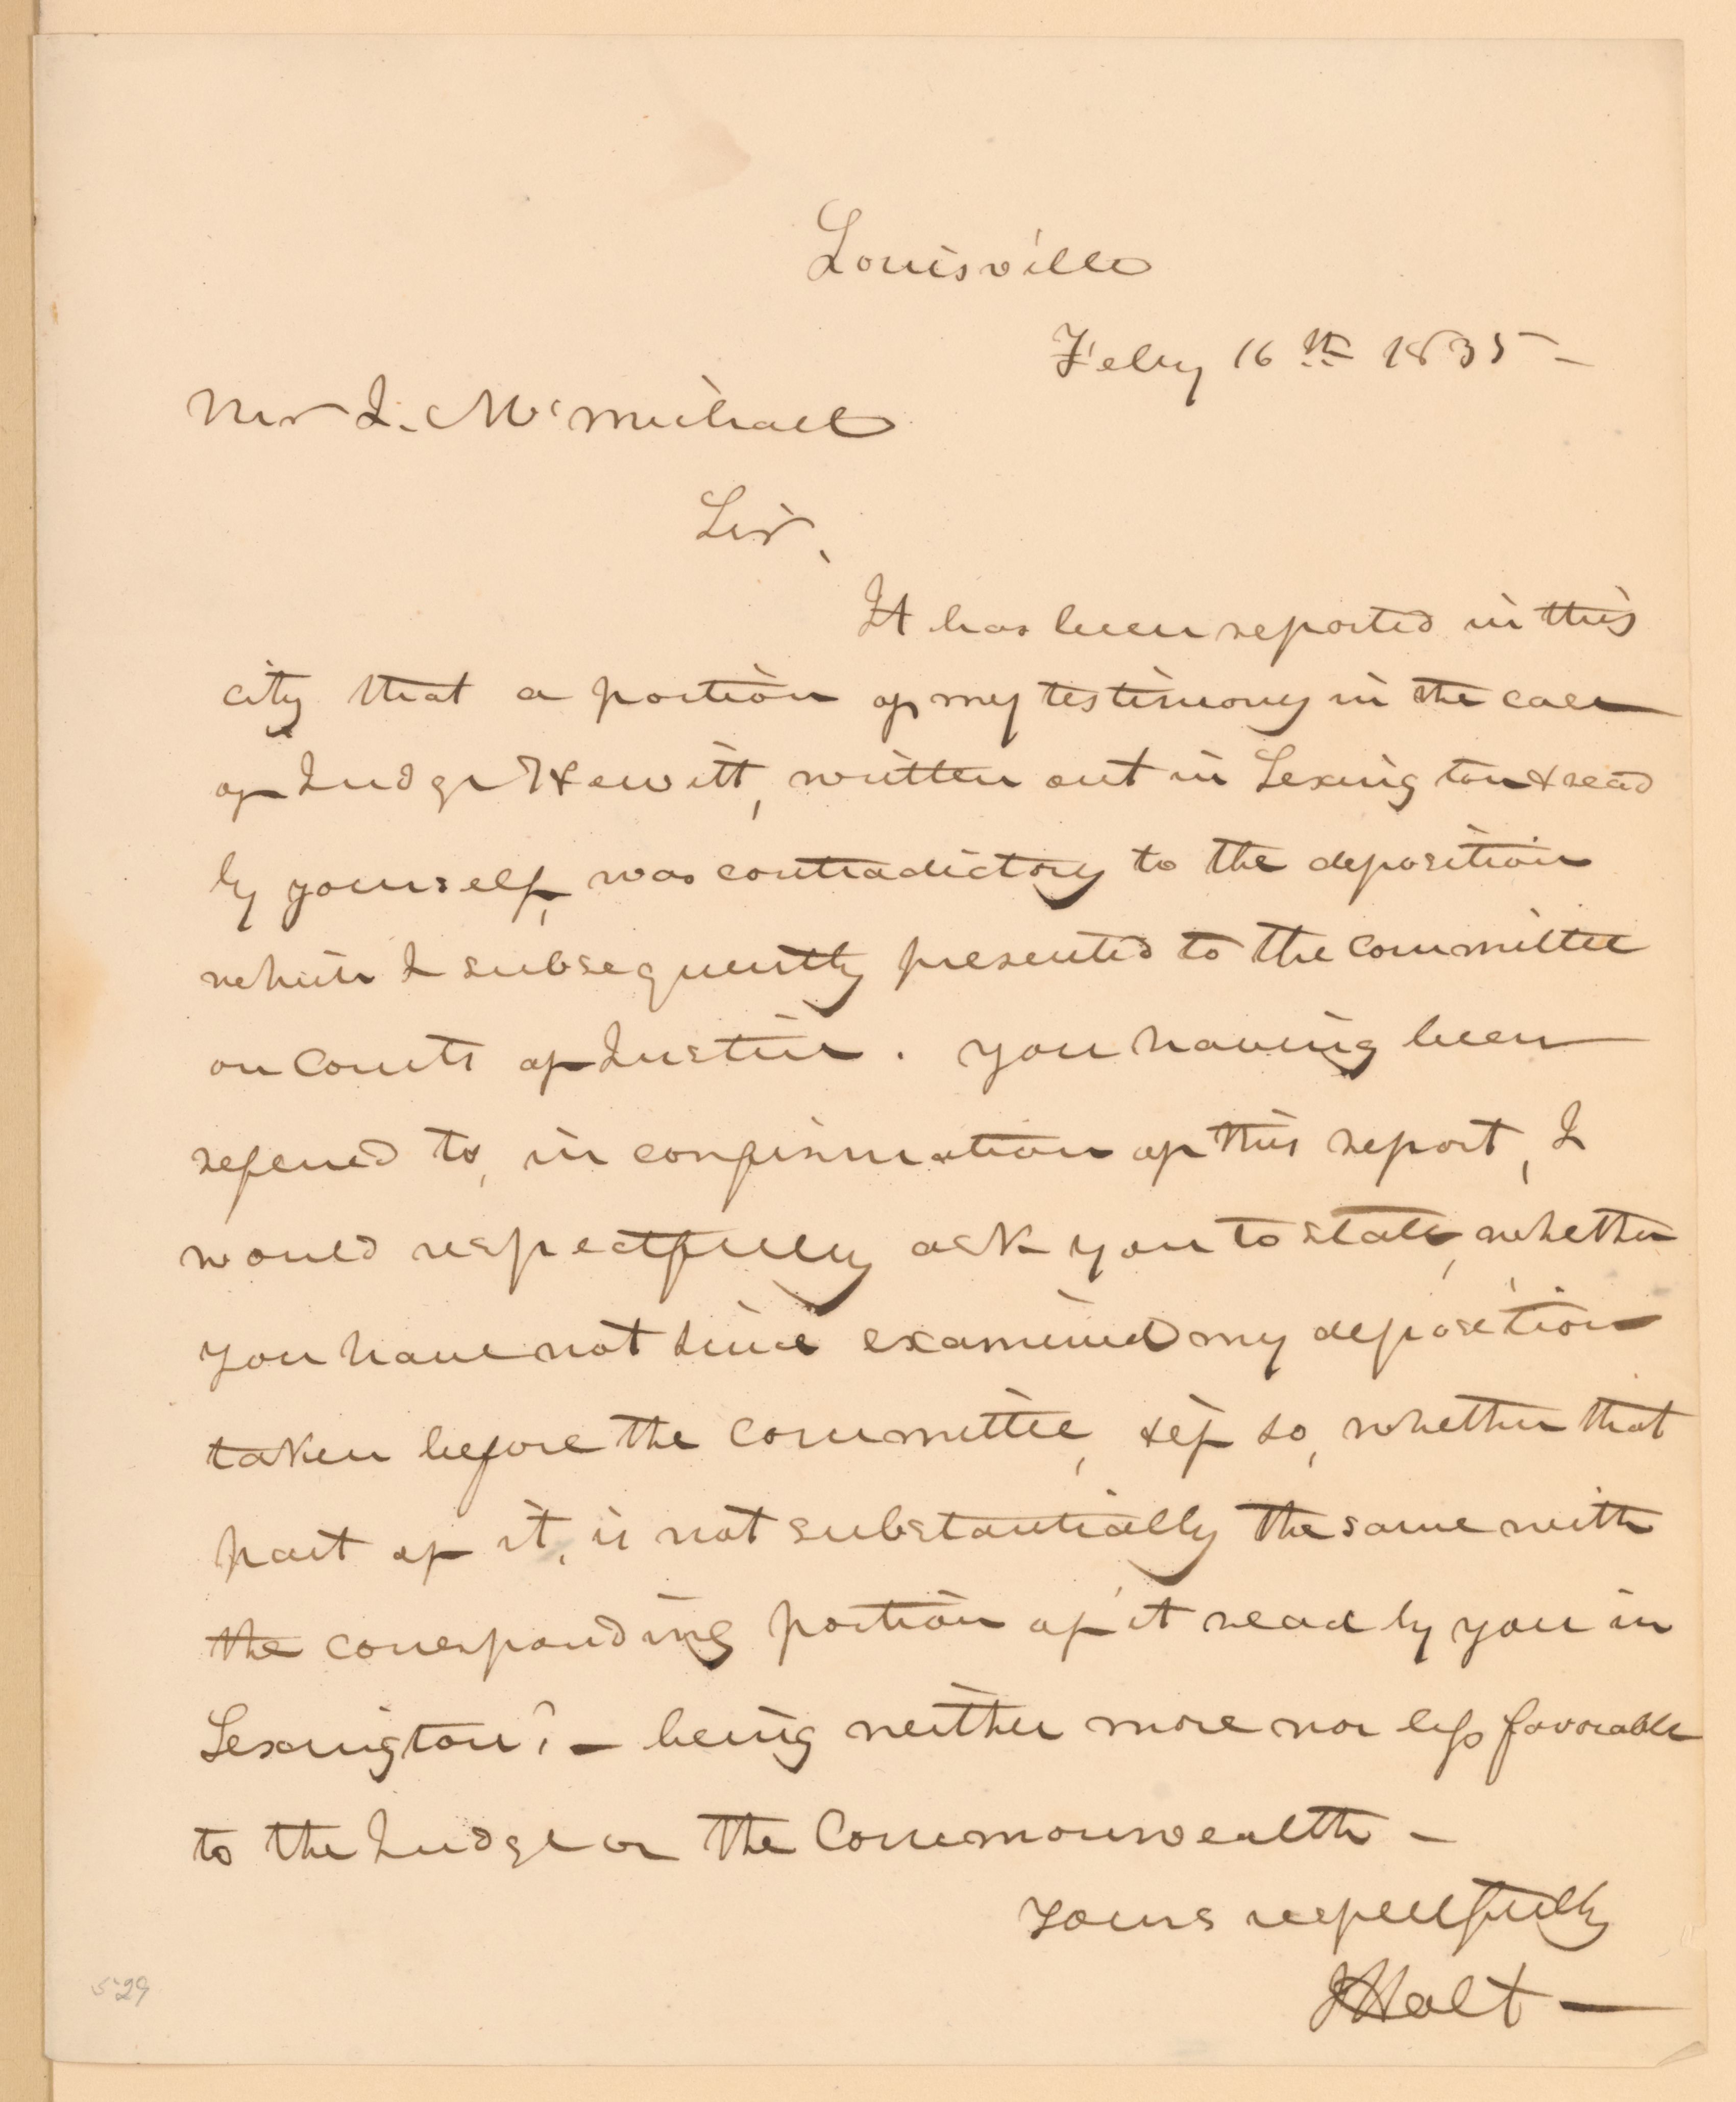 Louisville
Feby 16th 1835 -
Mr J. McMichael
Sir,
It has been reported in this
city that a portion of my testimony in the case
of Judge Hewitt, written out in Lexington & read
by yourself, was contradictory to the deposition
which I subsequently presented to the committee
on Courts of Justice. You having been
refered to, in confirmation of this report, I
would respectfully ask you to state, whether
you have not since examined my deposition
taken before the Committee, & if so, whether that
part of it, is not substantially the same with
the corresponding portion of it read by you in
Lexington? - being neither more nor less favorable
to the Judge or the Commonwealth -
Yours respectfully
J Holt -
529